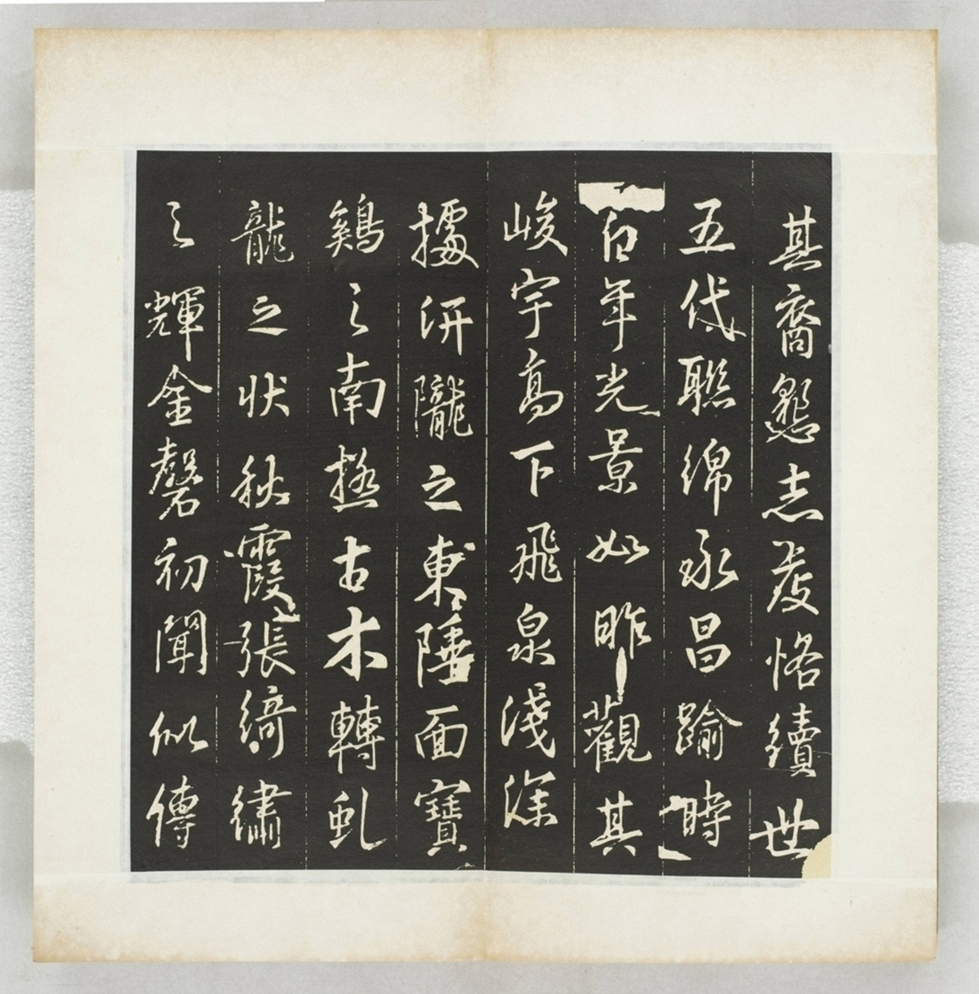 其裔懇志虔恪續世
五代聯綿永昌踰時
百年光景如昨觀其
峻宇高下飛泉淺深
據汧隴之東陲面寶
鷄之南極古木轉虬
龍之狀秋霞張綺繡
之輝金磬初聞似傳